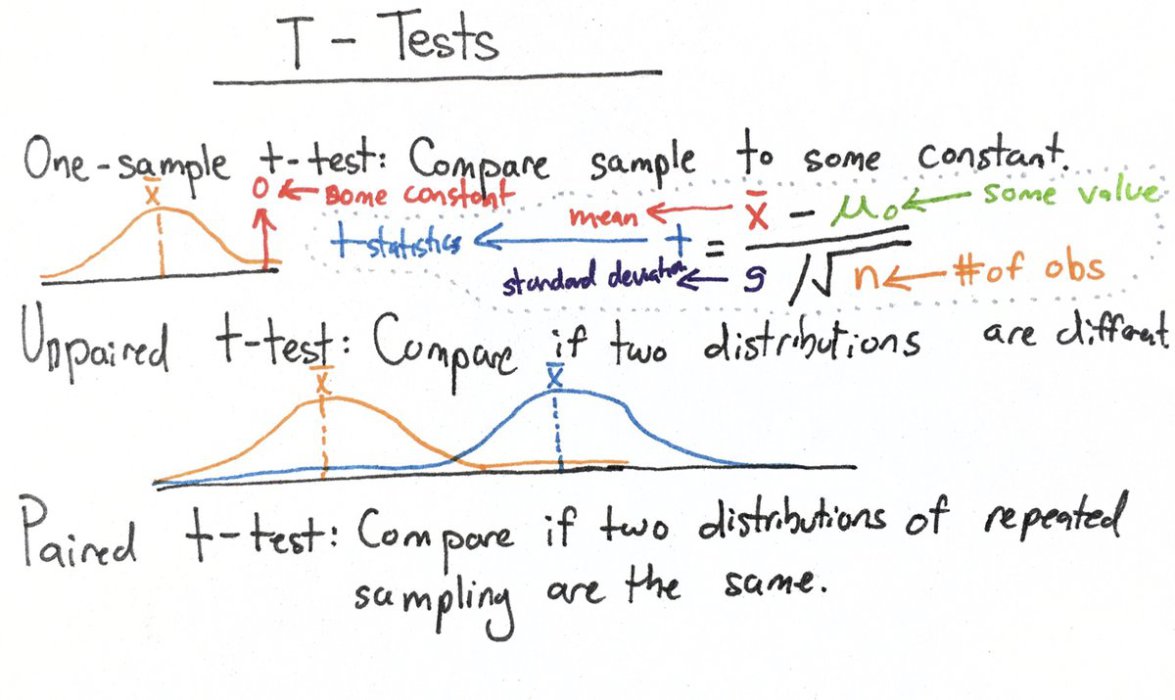 T - Tests
One-sample t-test: Compare sample to some constant.
x̄ 0 ← some constant
mean ← x̄ - μ₀ ← some value
t statistics ← t =
standard deviation ← s / √n ← # of obs
Unpaired t-test: Compare if two distributions are different
x̄ x̄
Paired t-test: Compare if two distributions of repeated
sampling are the same.